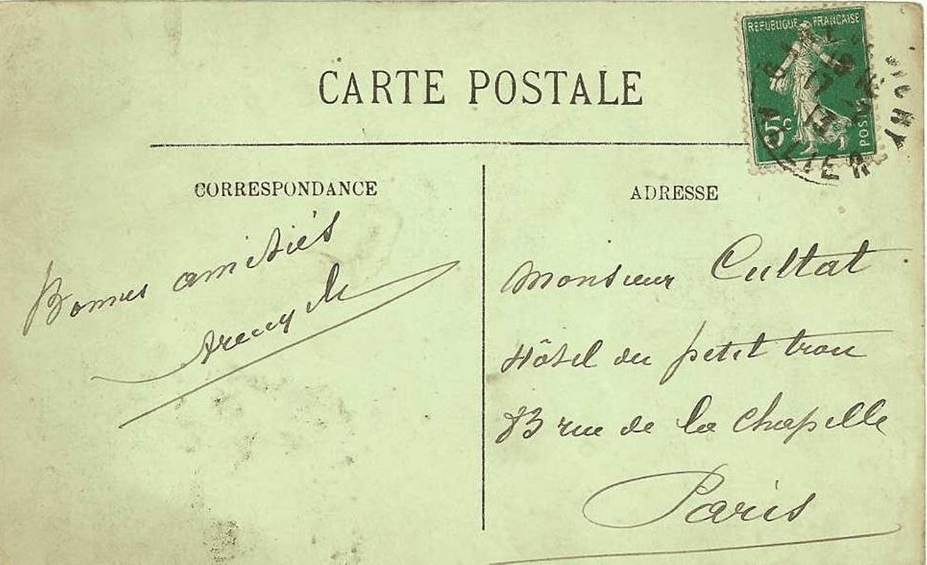 CARTE POSTALE
REPUBLIQUE FRANÇAISE
5c
POSTES
VICHY
ALLIER
CORRESPONDANCE
Bonnes amitiés
ADRESSE
Monsieur Cultat
Hôtel du petit trou
83 rue de la Chapelle
Paris